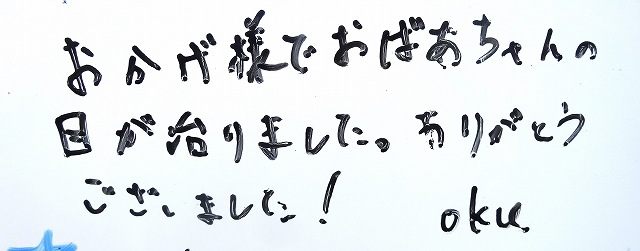 おかげ様でおばあちゃんの
目が治りました。ありがとう
ございました! oku